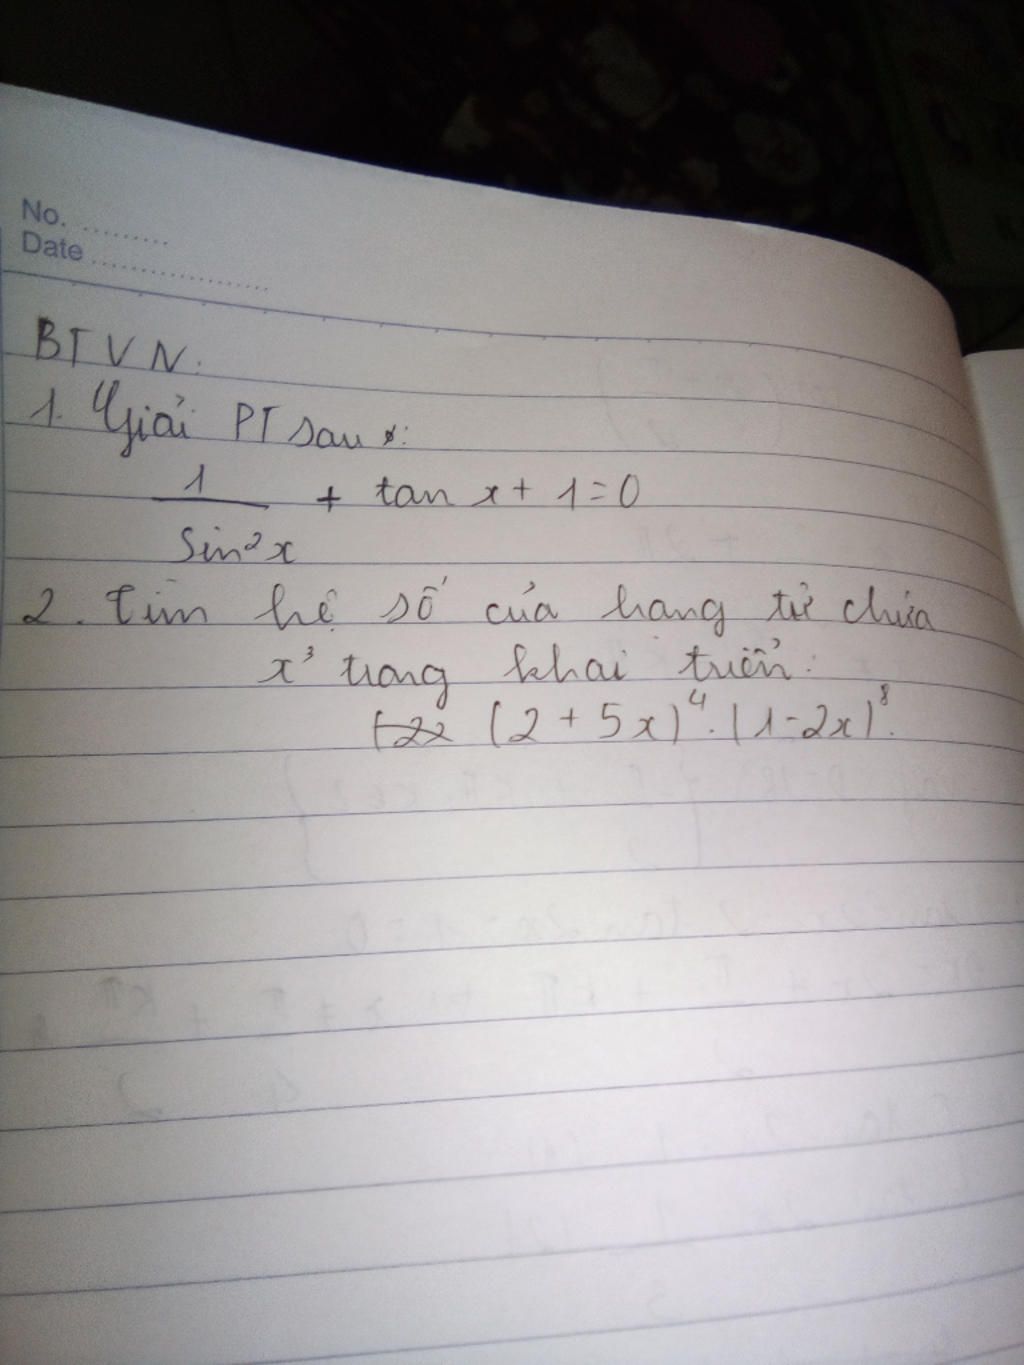 No. .........
Date ..................
BTVN:
1. Giải PT sau:
1/sin²x + tan x + 1 = 0
2. Tìm hệ số của hang tử chứa
x³ trong khai triển:
(2 + 5x)⁴.(1-2x)⁸.